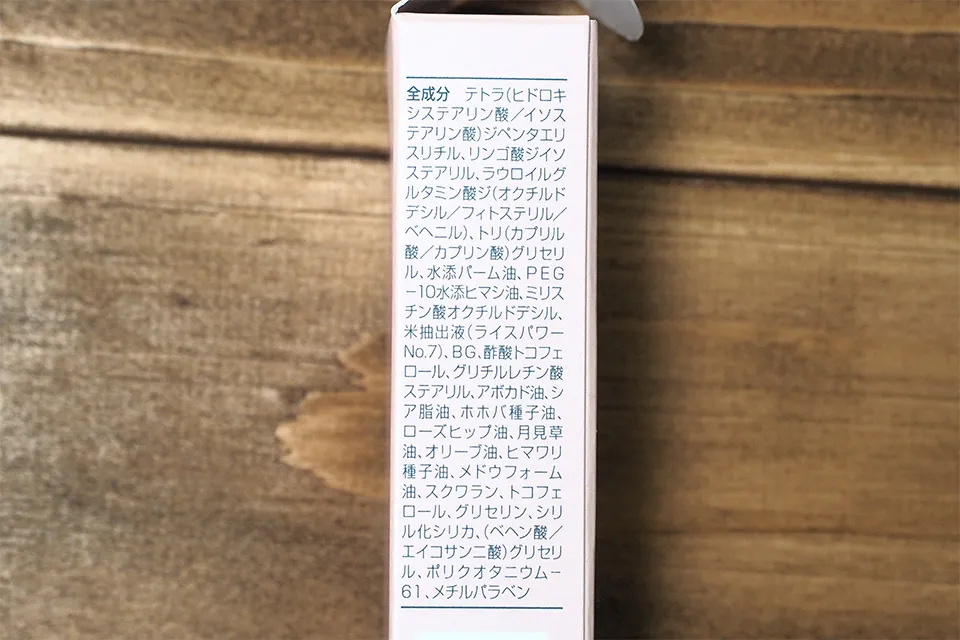 全成分 テトラ(ヒドロキ
システアリン酸/イソス
テアリン酸)ジペンタエリ
スリチル、リンゴ酸ジイソ
ステアリル、ラウロイルグ
ルタミン酸ジ(オクチルド
デシル/フィトステリル/
ベヘニル)、トリ(カプリル
酸/カプリン酸)グリセリ
ル、水添パーム油、PEG
-10水添ヒマシ油、ミリス
チン酸オクチルドデシル、
米抽出液(ライスパワー
No.7)、BG、酢酸トコフェ
ロール、グリチルレチン酸
ステアリル、アボカド油、シ
ア脂油、ホホバ種子油、
ローズヒップ油、月見草
油、オリーブ油、ヒマワリ
種子油、メドウフォーム
油、スクワラン、トコフェ
ロール、グリセリン、シリ
ル化シリカ、(ベヘン酸/
エイコサン二酸)グリセリ
ル、ポリクオタニウム-
61、メチルパラベン